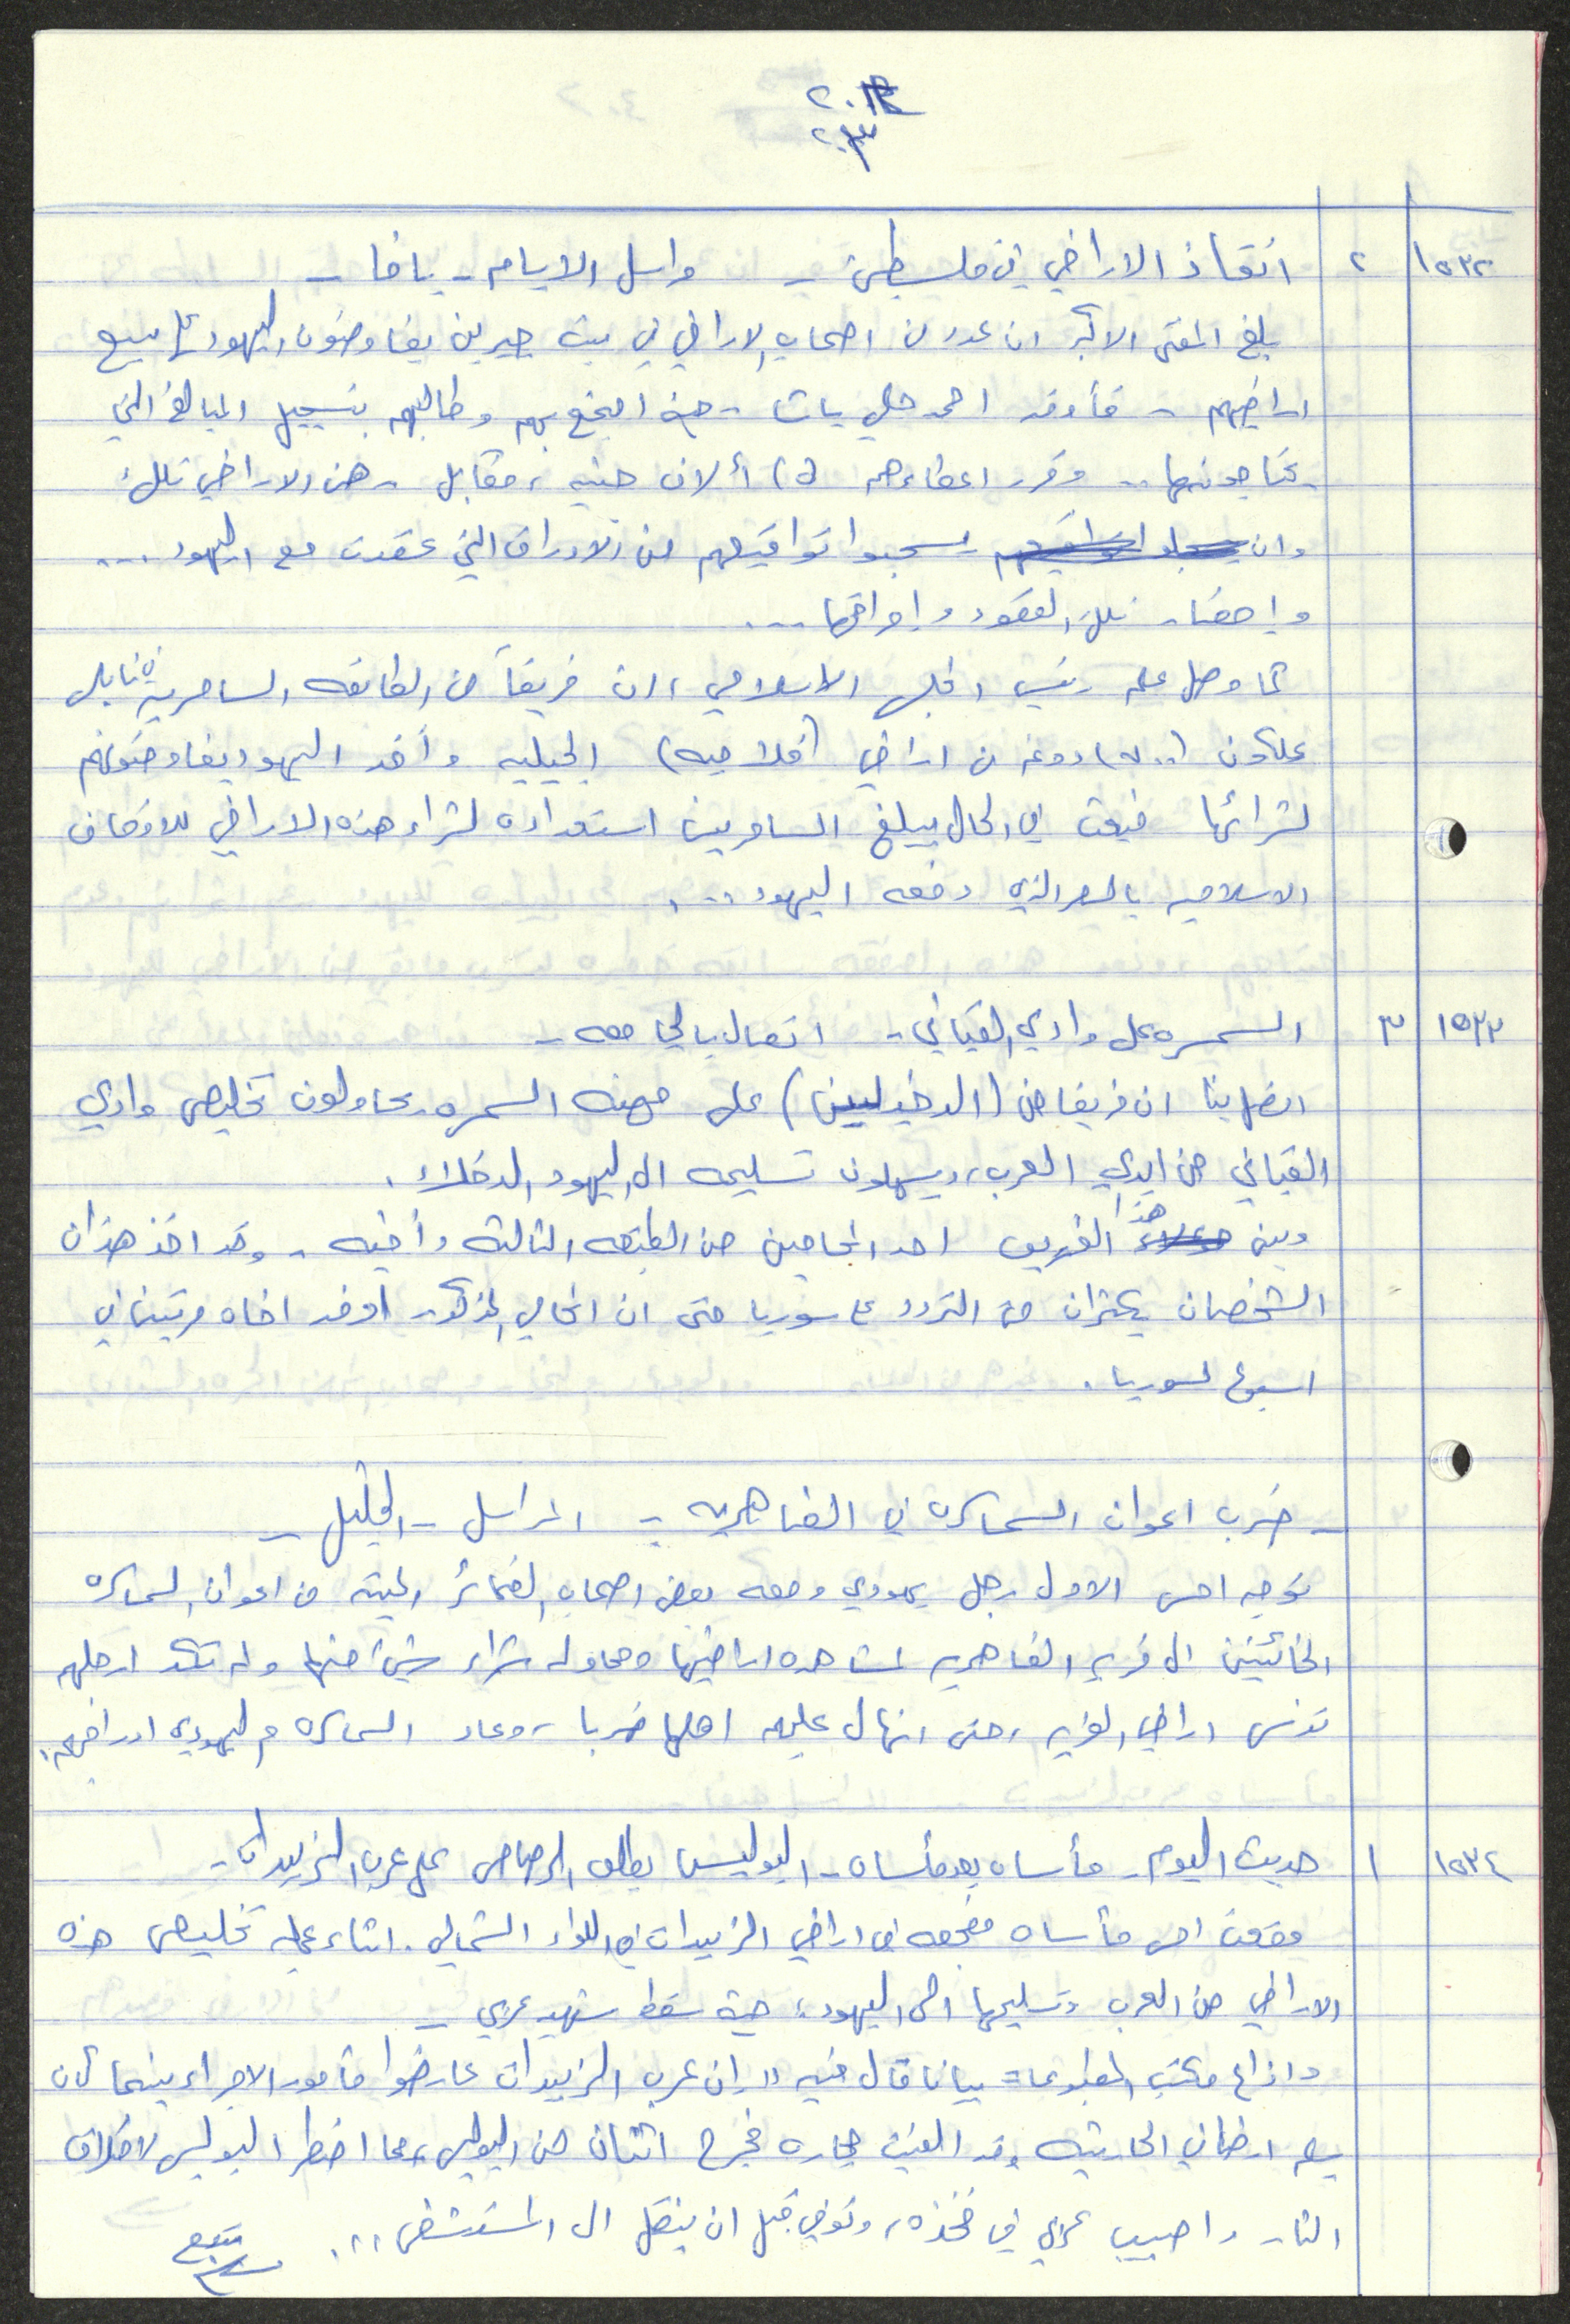 ١٥٣٢ ٢ انقاذ الاراضي في فلسطين - مراسل الايام - يافا -
بلغ المفتي الاكبر ان عدد من اصحاب الاراضي في بيت جبرين يفاوضون اليهود على بيع
اراضيهم - فأوفد احمد حلمي باشا - حيث اجتمع بهم وطالبهم بتسجيل المبالغ التي
يحتاجونها .. وقرر اعطاءهم (٥) آلاف جنيه ، مقابل رهن الاراضي تلك
وان يسحبوا تواقيعهم من الاوراق التي عقدت مع اليهود ...
واحضار تلك العقود واحراقها ...
كما وصل علم رئيس المجلس الاسلامي ، ان فريقاً من الطائفه السامريه في نابلس
يملكون دونم من اراضي (فلاحيه) الجبليه وأخذ اليهود يفاوضونهم
لشرائها فبعث في الحال يبلغ السامريين استعداده لشراء هذه الاراضي للاوقاف
الاسلاميه بالسعر الذي دفعه اليهود ...
١٥٣٣ ٣ السمسره على وادي القباني - اتصال بالجامعه -
اتصل بنا ان فريقا من (الدخيلين) على مهنه السمسره يحاولون تخليص وادي
القباني من ايدي العرب ، ويسهلون تسليمه الى اليهود الدخلاء .
وبين هذا الفريق احد المحامين من الطبقه الثالثه وأخيه - وقد اخذ هذان
الشخصان يكثران من التردد على سوريا حتى ان المحامي المذكور اوفد اخاه مرتين في
اسبوع لسوريا .
- ضرب اعوان السماسره في الظاهريه - المراسل - الخليل -
توجه امس الاول رجل يهودي ومعه بعض اصحاب الضمائر الميته من اعوان السماسره
الخائنين الى قريه الظاهريه لمشاهده اراضيها ومحاوله شراء شيئ منها ولم تكد ارجلهم
تدنس اراضي القريه ، حتى انهال عليهم اهلها ضربا ، وعاد السماسره واليهودي ادراجهم .
١٥٣٤ ١ حديث اليوم - مأساه بعد مأساه - البوليس يطلق الرصاص على عرب الزبيدات -
وقعت امس مأساه مفجعه في اراضي الزبيدات في اللواء الشمالي . اثناء عمليه تخليص هذه
الاراضي من العرب وتسليمها الى اليهود ، حيث سقط شهيد عربي -
واذاع مكتب المطبوعات بيانا قال فيه " ان عرب الزبيدات عارضوا مأمور الاجراء بينما كان
يسلم ارضا في الحارثيه وقد القيت حجاره فجرح اثنان من البوليس ، مما اضطر البوليس لاطلاق
النار واصيب عربي في فخذه ، وتوفي قبل ان ينقل الى المستشفى ...
يتبع